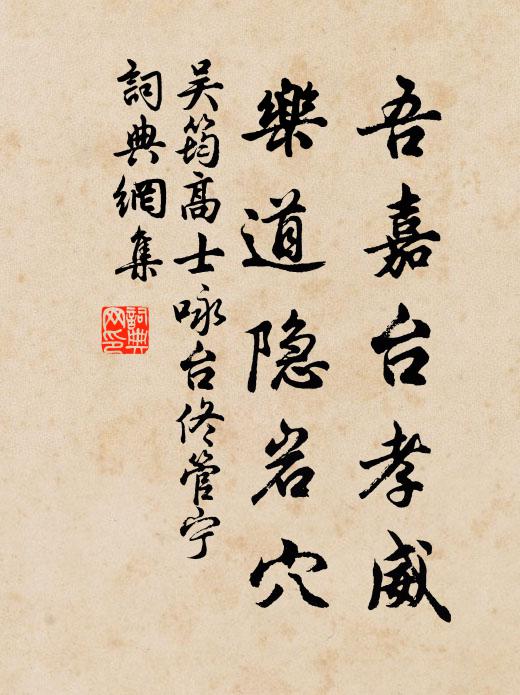 吾嘉台孝威
樂道隐岩穴
吴筠高士咏台佟管宁
詞典網集
詞典网印